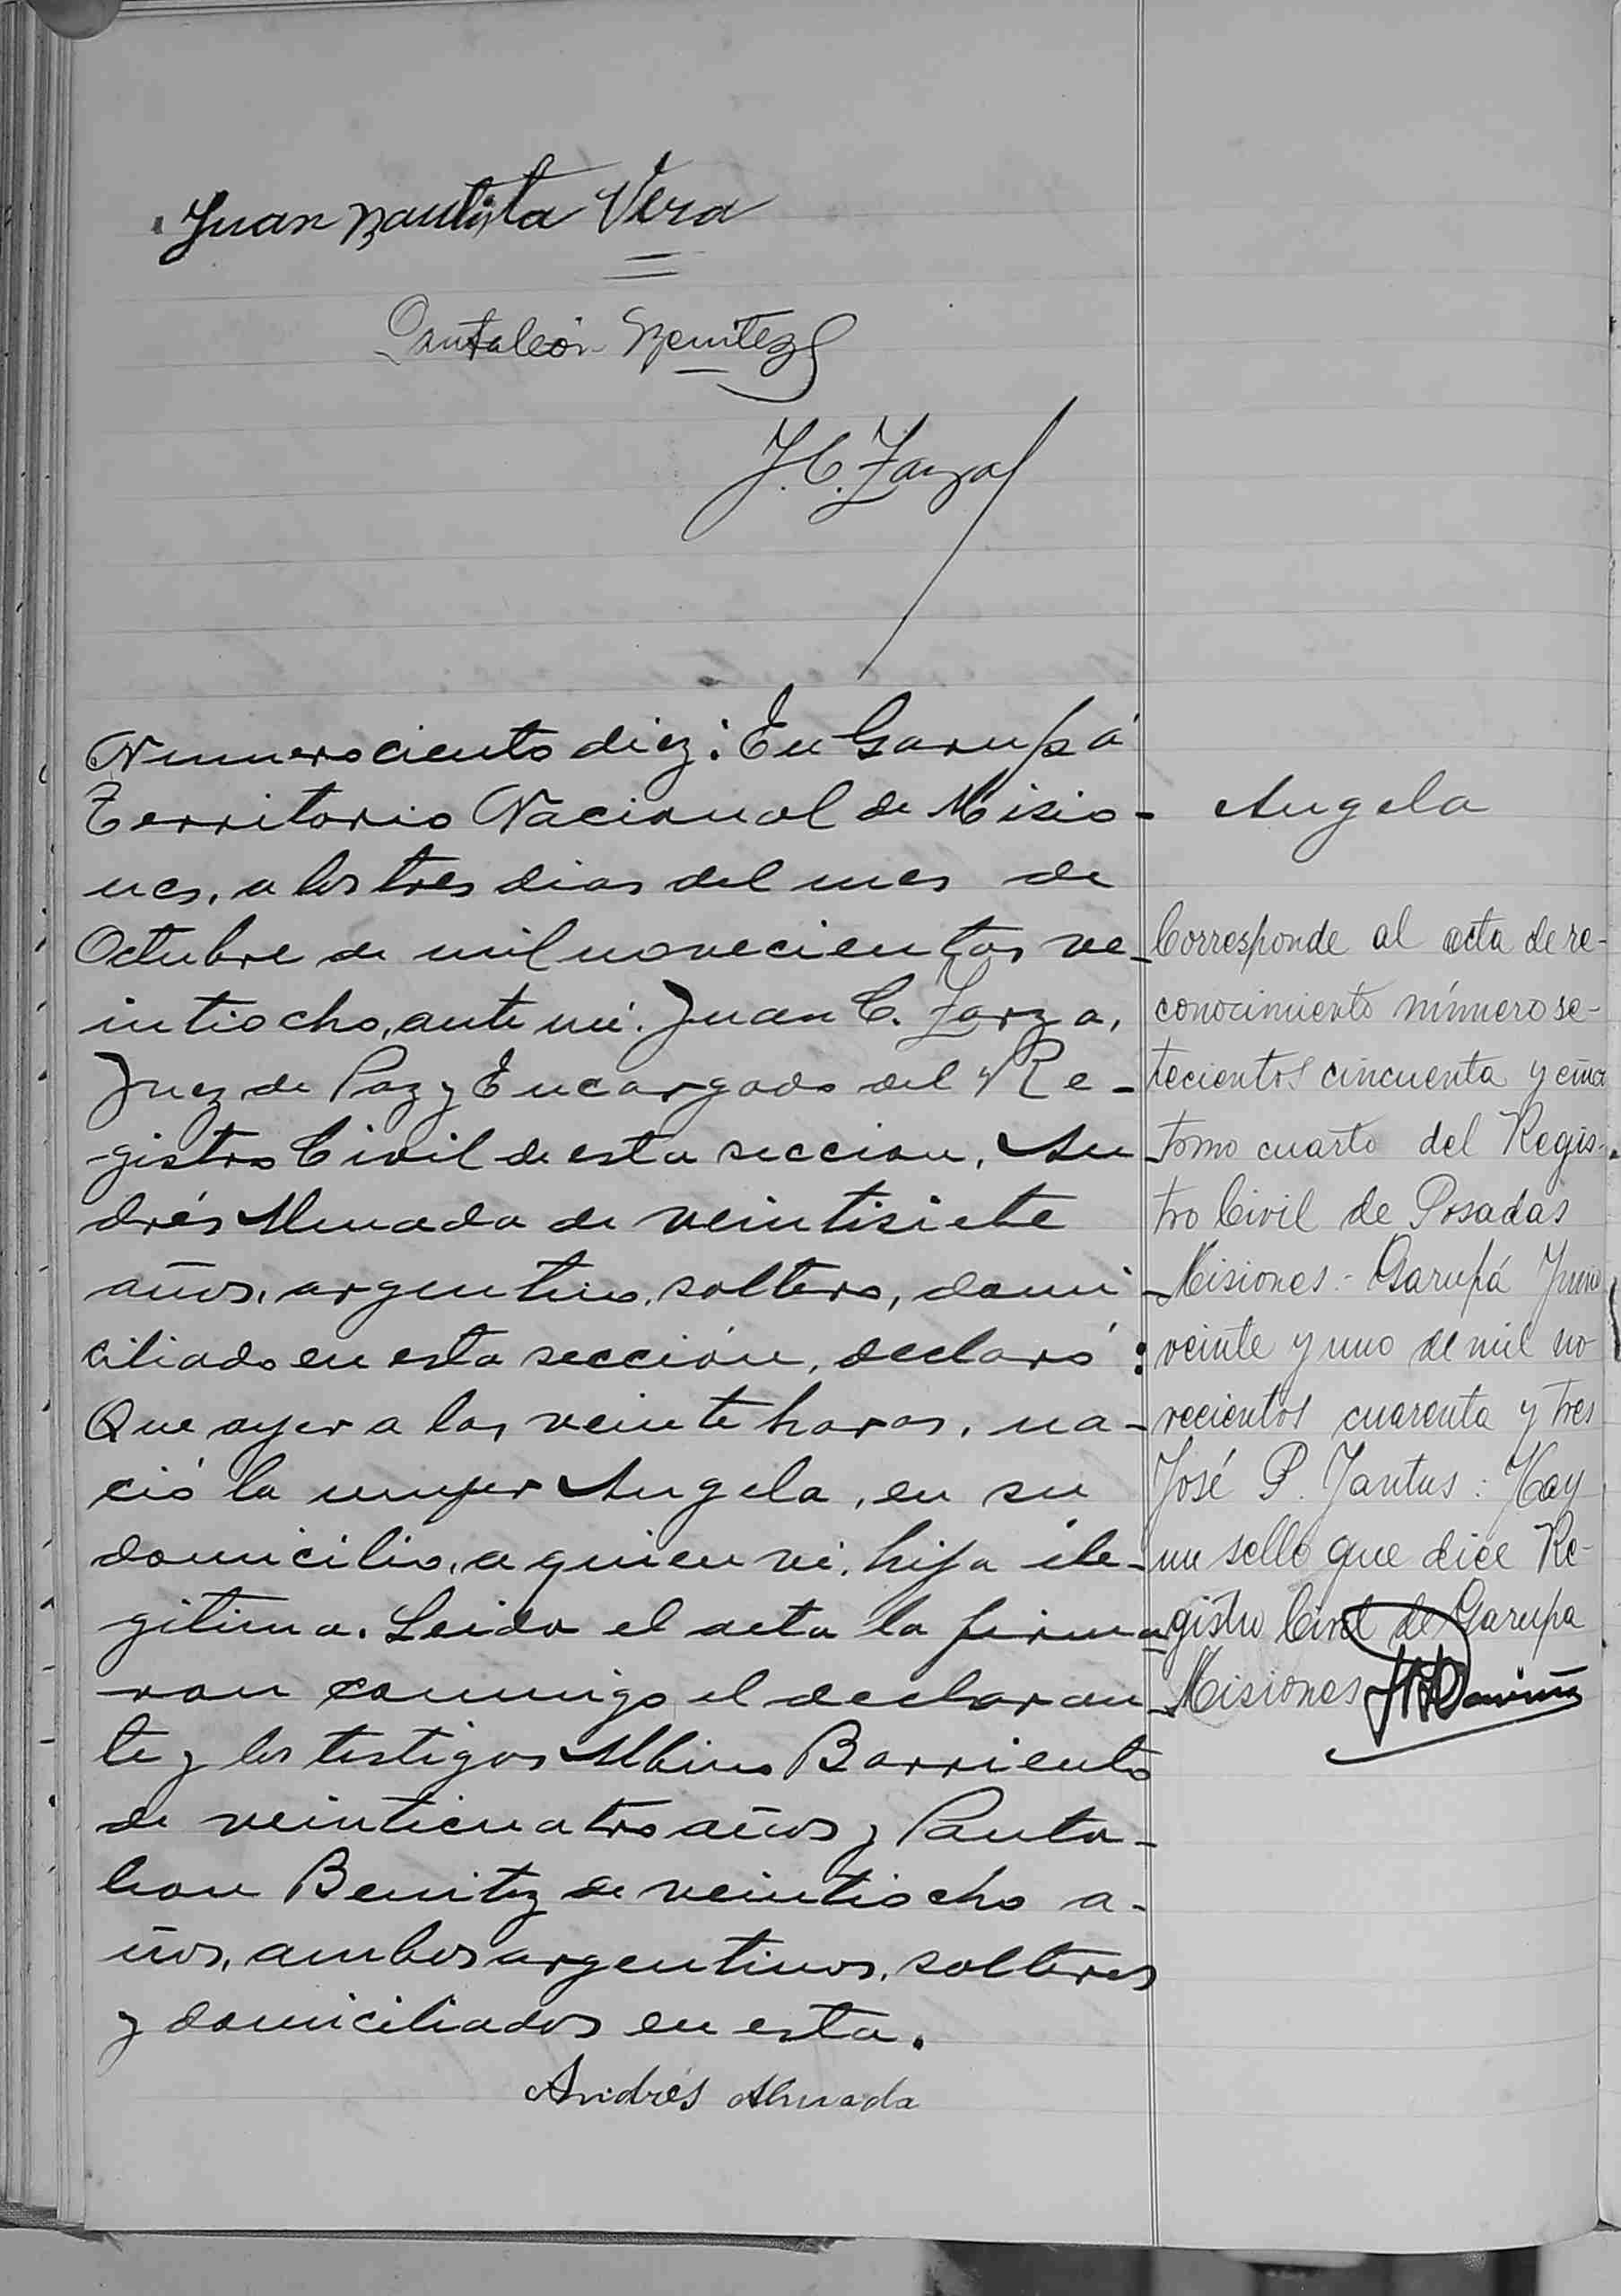 Juan Bautista Vera
Pantaleón Benitez
J. C. Zarza
Numero ciento diez: En Garupá
Territorio Nacional de Misio-
nes, a los tres dias del mes de
Octubre de mil novecientos ve-
intiocho, ante mi: Juan C. Zarza,
Juez de Paz y Encargado del Re-
gistro Civil de esta seccion, An
drés Almada de veintisiete
años, argentino, soltero, domi
ciliado en esta sección, declaró:
Que ayer a las veinte horas, na-
ció la mujer Angela, en su
domicilio, a quien vi, hija ile-
gitima. Leida el acta la firma
ron conmigo el declaran
te y los testigos Albino Barriento
de veinticuatro años y Panta-
leon Benitez de veintiocho a-
ños, ambos argentinos, solteros
y domiciliados en esta.
Andrés Almada
Angela
Corresponde al acta de re-
conocimiento número se-
tecientos cincuenta y cinco
tomo cuarto del Regis-
tro Civil de Posadas
Misiones - Garupá Junio
veinte y uno de mil no
vecientos cuarenta y tres
José P. Jantus: Hay
un sello que dice Re-
gistro Civil de Garupa
Misiones